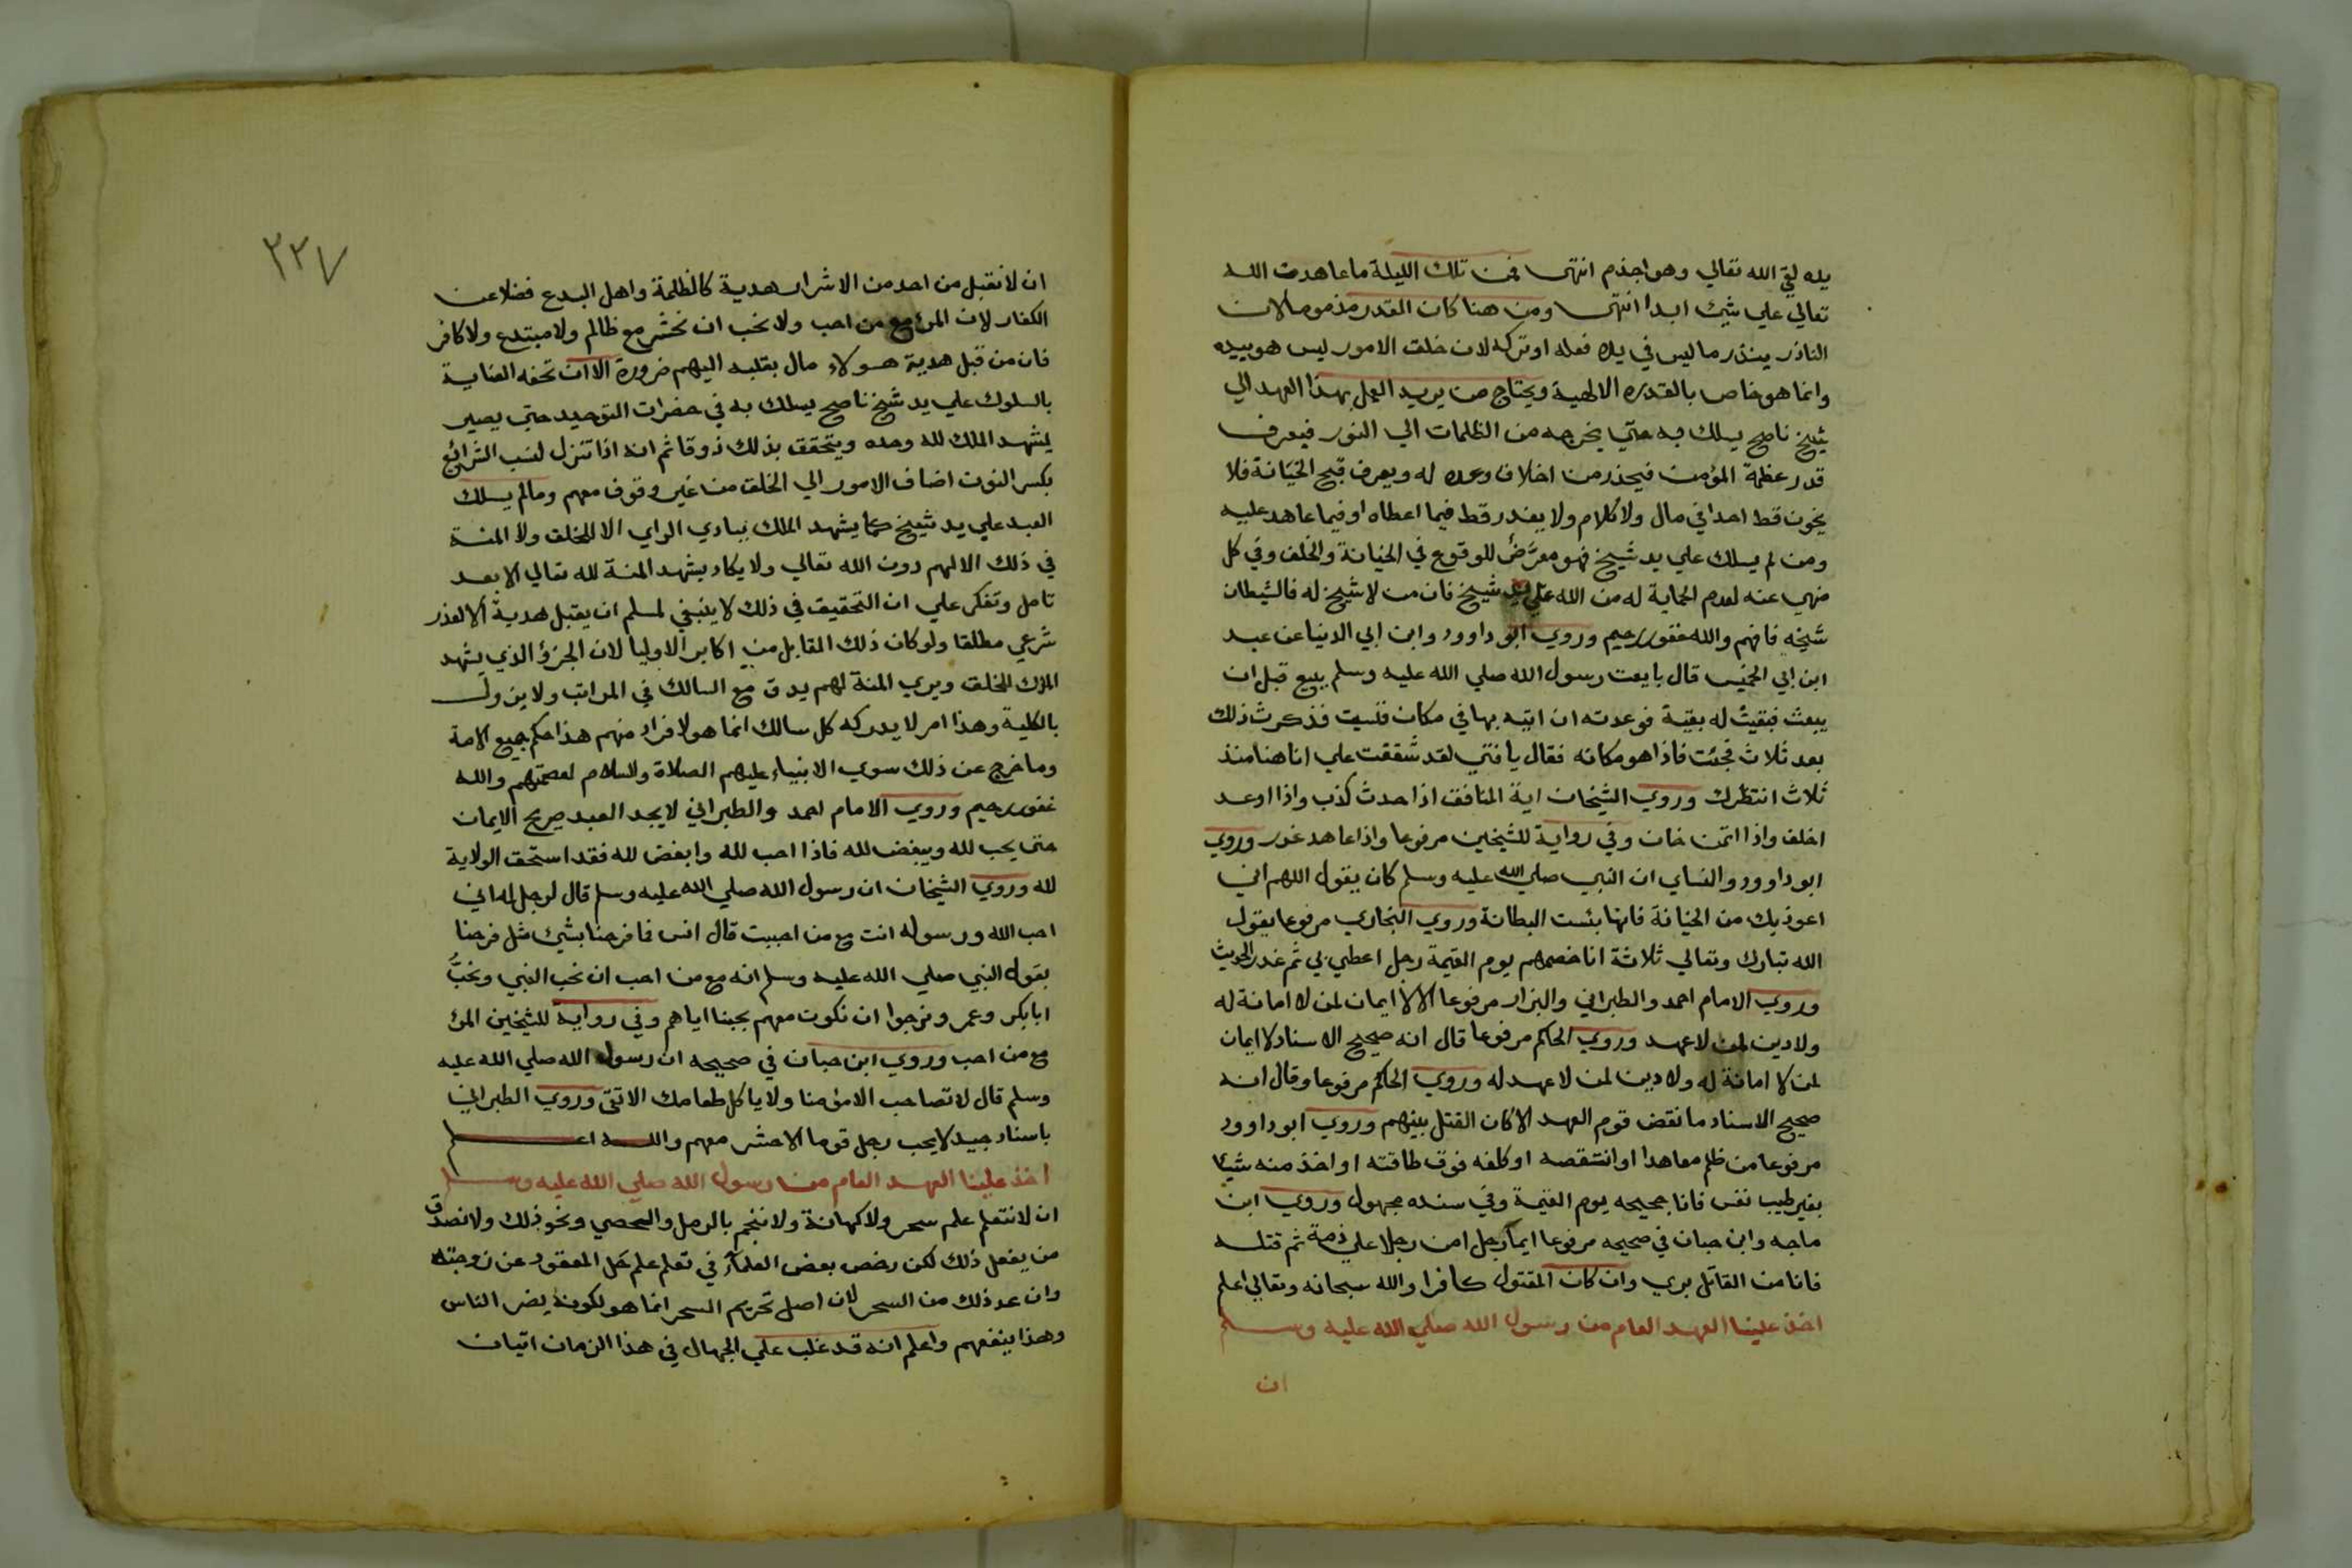 يده لقي الله تعالي وهو اجذم انتهى فمن تلك الليلة ما عاهدت الله
تعالي علي شيئ ابدا انتهى ومن هنا كان القدر مذموما لان
الناذر ينذر ما ليس في يده فعله او تركه لان خلق الامور ليس هو بيده
وانما هو خاص بالقدره الالهية ويحتاج من يريد العمل بهذا العهد الي
شيخ ناصح يسلك به حتي يخرجه من الظلمات الي النور فيعرف
قدر عظمة المؤمن فيحذر من اخلاف وعده له ويعرف قبح الخيانة فلا
يخون قط احدا في مال ولا كلام ولا يغدر قط فيما اعطاه او فيما عاهد عليه
ومن لم يسلك علي يد شيخ فهو معرض للوقوع في الخيانة والخلف وفي كل
منهي عنه لعدم الحماية له من الله علي يد شيخ فان من لا شيخ له فالشيطان
شيخه فافهم والله غفور رحيم وروي ابو داوود وابن ابي الدنيا عن عبد
ابن ابي الخنيس قال بايعت رسول الله صلي الله عليه وسلم ببيع قبل ان
يبعث فبقيت له بقية فوعدته ان اتيه بها في مكان فنسيت فذكرت ذلك
بعد ثلاث فجئت فاذا هو مكانه فقال يا فتي لقد شققت علي انا هنا منذ
ثلاث انتظرك وروي الشيخان اية المنافق اذا حدث كذب واذا اوعد
اخلف واذا اتمن خان وفي رواية للشيخين مرفوعا واذا عاهد غدر وروي
ابو داوود والنساي ان النبي صلي الله عليه وسلم كان يقول اللهم اني
اعوذ بك من الخيانة فانها بئست البطانة وروي البخاري مرفوعا يقول
الله تبارك وتعالي ثلاثة انا خصمهم يوم القيمة رجل اعطي بي ثم غدر الحديث
وروي الامام احمد والطبراني والبزار مرفوعا الا لا ايمان لمن لا امانة له
ولا دين لمن لا عهد وروي الحاكم مرفوعا قال انه صحيح الاسناد لا ايمان
لمن لا امانة له ولا دين لمن لا عهد له وروي الحاكم مرفوعا وقال انه
صحيح الاسناد ما نقض قوم العهد الا كان القتل بينهم وروي ابو داوود
مرفوعا من ظلم معاهدا او انتقصه او كلفه فوق طاقته او اخذ منه شيئا
بغير طيب نفس فانا حجيجه يوم القيمة وفي سنده مجهول وروي ابن
ماجه وابن حبان في صحيحه مرفوعا ايما رجل امن رجلا علي ذمة ثم قتله
فانا من القاتل بري وان كان المقتول كافرا والله سبحانه وتعالي اعلم
اخذ علينا العهد العام من رسول الله صلي الله عليه وسلم
ان
٢٢٧
ان لا نقبل من احد من الاشرار هدية كالظلمة واهل البدع فضلا عن
الكفار لان المرء مع من احب ولا نحب ان نحشر مع ظالم ولا مبتدع ولا كافر
فان من قبل هدية هولاء مال بقلبه اليهم ضرورة الا ان تحفه العناية
بالسلوك علي يد شيخ ناصح يسلك به في حضرات التوحيد حتي يصير
يشهد الملك لله وحده ويتحقق بذلك ذوقا ثم انه اذا تنزل لنسب الشرائع
بكسر النون اضاف الامور الي الخلق من غير وقوف معهم وما لم يسلك
العبد علي يد شيخ كما يشهد الملك ببادي الراي الا للخلق ولا المنة
في ذلك الا لهم دون الله تعالي ولا يكاد يشهد المنة لله تعالي الا بعد
تامل وتفكر علي ان التحقيق في ذلك لا ينبغي لمسلم ان يقبل هدية الا لعذر
شرعي مطلقا ولو كان ذلك القابل من اكابر الاوليا لان الجزؤ الذي يشهد
الملك للخلق ويري المنة لهم يدق مع السالك في المراتب ولا يزول
بالكلية وهذا امر لا يدركه كل سالك انما هو لافراد منهم هذا حكم جميع الامة
وما خرج عن ذلك سوي الانبياء عليهم الصلاة والسلام لعصمتهم والله
غفور رحيم وروي الامام احمد والطبراني لا يجد العبد صريح الايمان
حتى يحب لله ويبغض لله فاذا احب لله وابغض لله فقد استحق الولاية
لله وروي الشيخان ان رسول الله صلي الله عليه وسلم قال لرجل له اني
احب الله ورسوله انت مع من احببت قال انس فما فرحنا بشيئ مثل فرحنا
بقول النبي صلي الله عليه وسلم انه مع من احب ان نحب النبي ونحب
ابا بكر وعمر ونرجوا ان نكون معهم بحبنا اياهم وفي رواية للشيخين المرء
مع من احب وروي ابن حبان في صحيحه ان رسول الله صلي الله عليه
وسلم قال لا تصاحب الا مؤمنا ولا ياكل طعامك الا تقي وروي الطبراني
باسناد جيد لا يحب رجل قوما الا حشر معهم والله اعلم
اخذ علينا العهد العام من رسول الله صلي الله عليه وسلم
ان لا نتعلم علم سحر ولا كهانة ولا ننجم بالرمل والحصي ونحو ذلك ولا نصدق
من يفعل ذلك لكن رخص بعض العلمآء في تعلم علم حل المعقود عن زوجته
وان عد ذلك من السحر لان اصل تحريم السحر انما هو لكونه يضر الناس
وهذا ينفعهم واعلم انه قد غلب علي الجهال في هذا الزمان اتيان